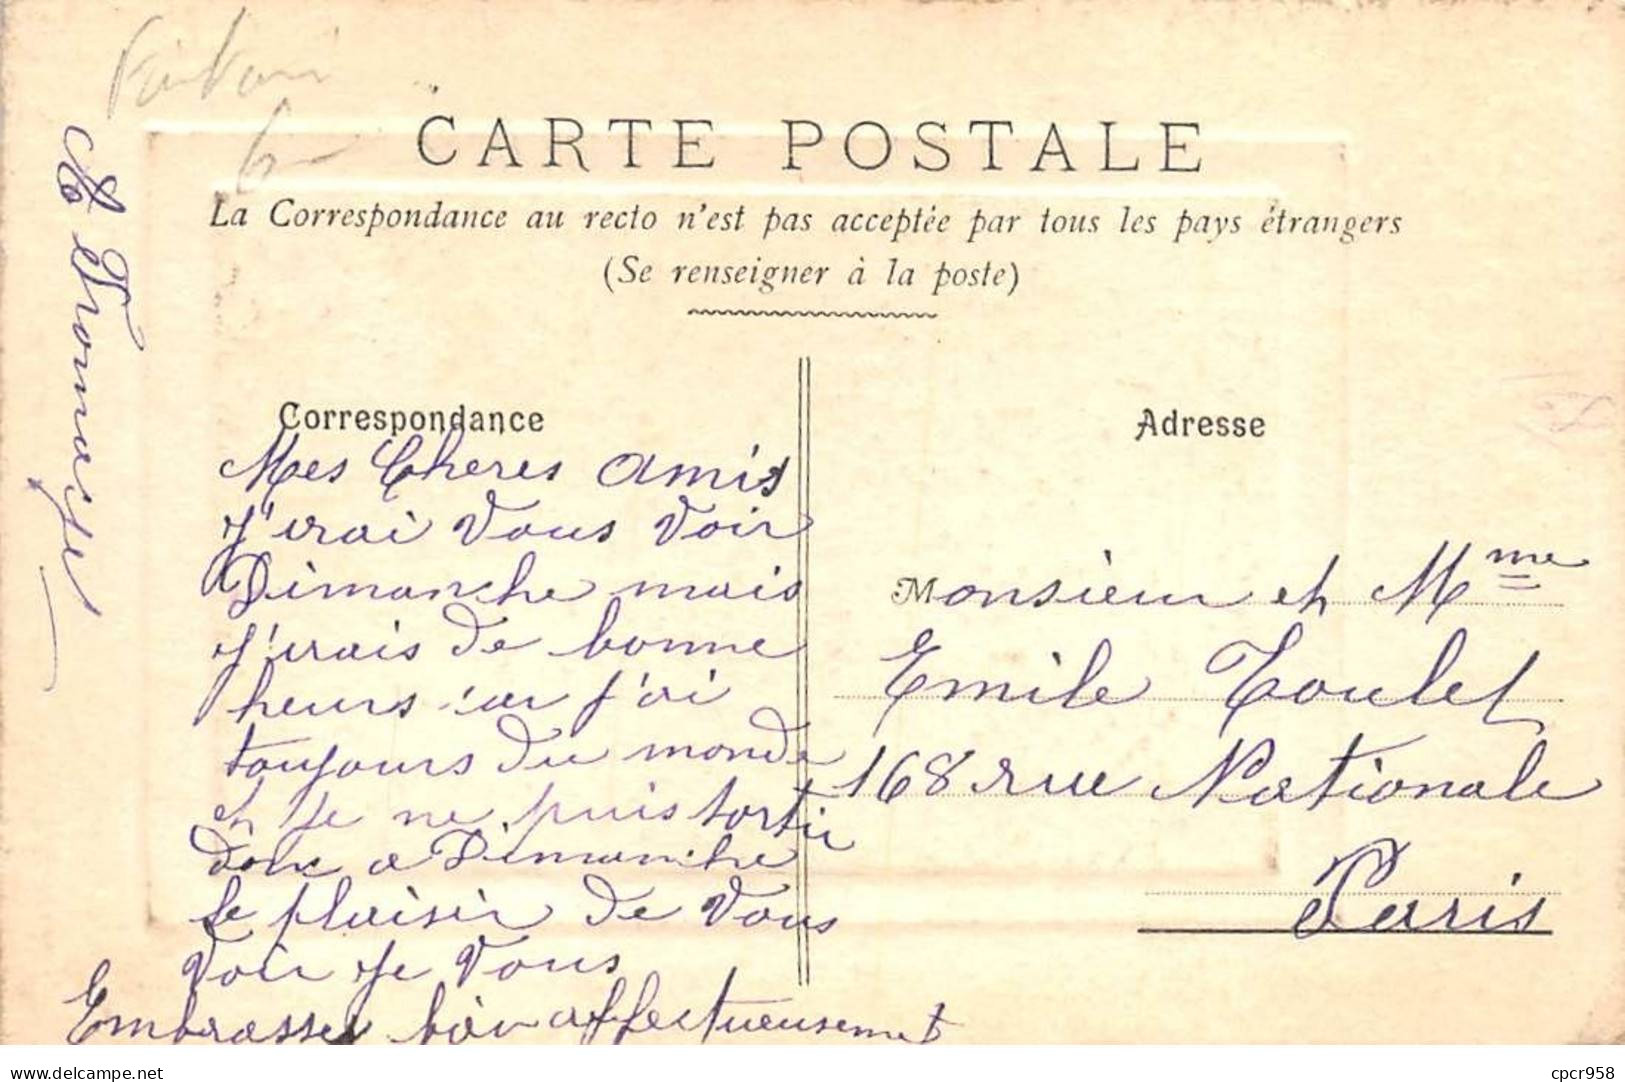 CARTE POSTALE
La Correspondance au recto n'est pas acceptée par tous les pays étrangers
(Se renseigner à la poste)
Correspondance
Mes Cheres amis
j'irai Vous Voir
Dimanche mais
j'irais de bonne
heurs car j'ai
toujours du monde
et je ne puis sortir
donc a Dimanche
le plaisir de Vous
Voir je Vous
Embrasses bien affectueusement
Adresse
Monsieur et Mme
Emile Toulet
168 rue Nationale
Paris
delcampe.net
cpcr958